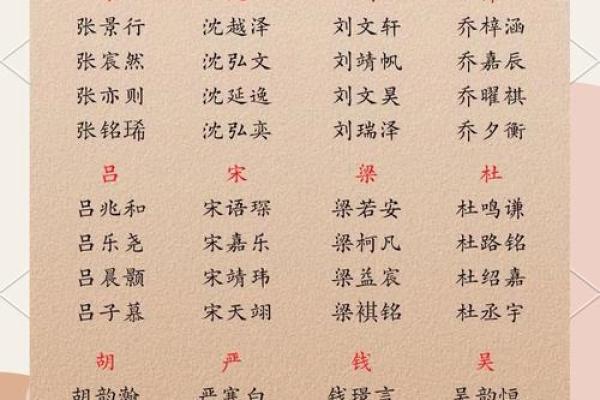 张景行 沈越泽 刘文轩 乔梓涵
张宸然 沈弘文 刘靖帆 乔嘉辰
张亦则 沈延逸 刘文昊 乔曜祺
张铭琋 沈弘奕 刘瑞泽 乔夕衡
吕 宋 梁 杜
吕兆和 宋语琛 梁若安 杜鸣谦
吕乐尧 宋嘉乐 梁柯凡 杜路铭
吕晨颢 宋靖玮 梁益宸 杜绍嘉
吕子慕 宋天翊 梁祺铭 杜丞宇
胡 严 钱 吴
胡韵瀚 严寒白 钱璟言 吴韵恒